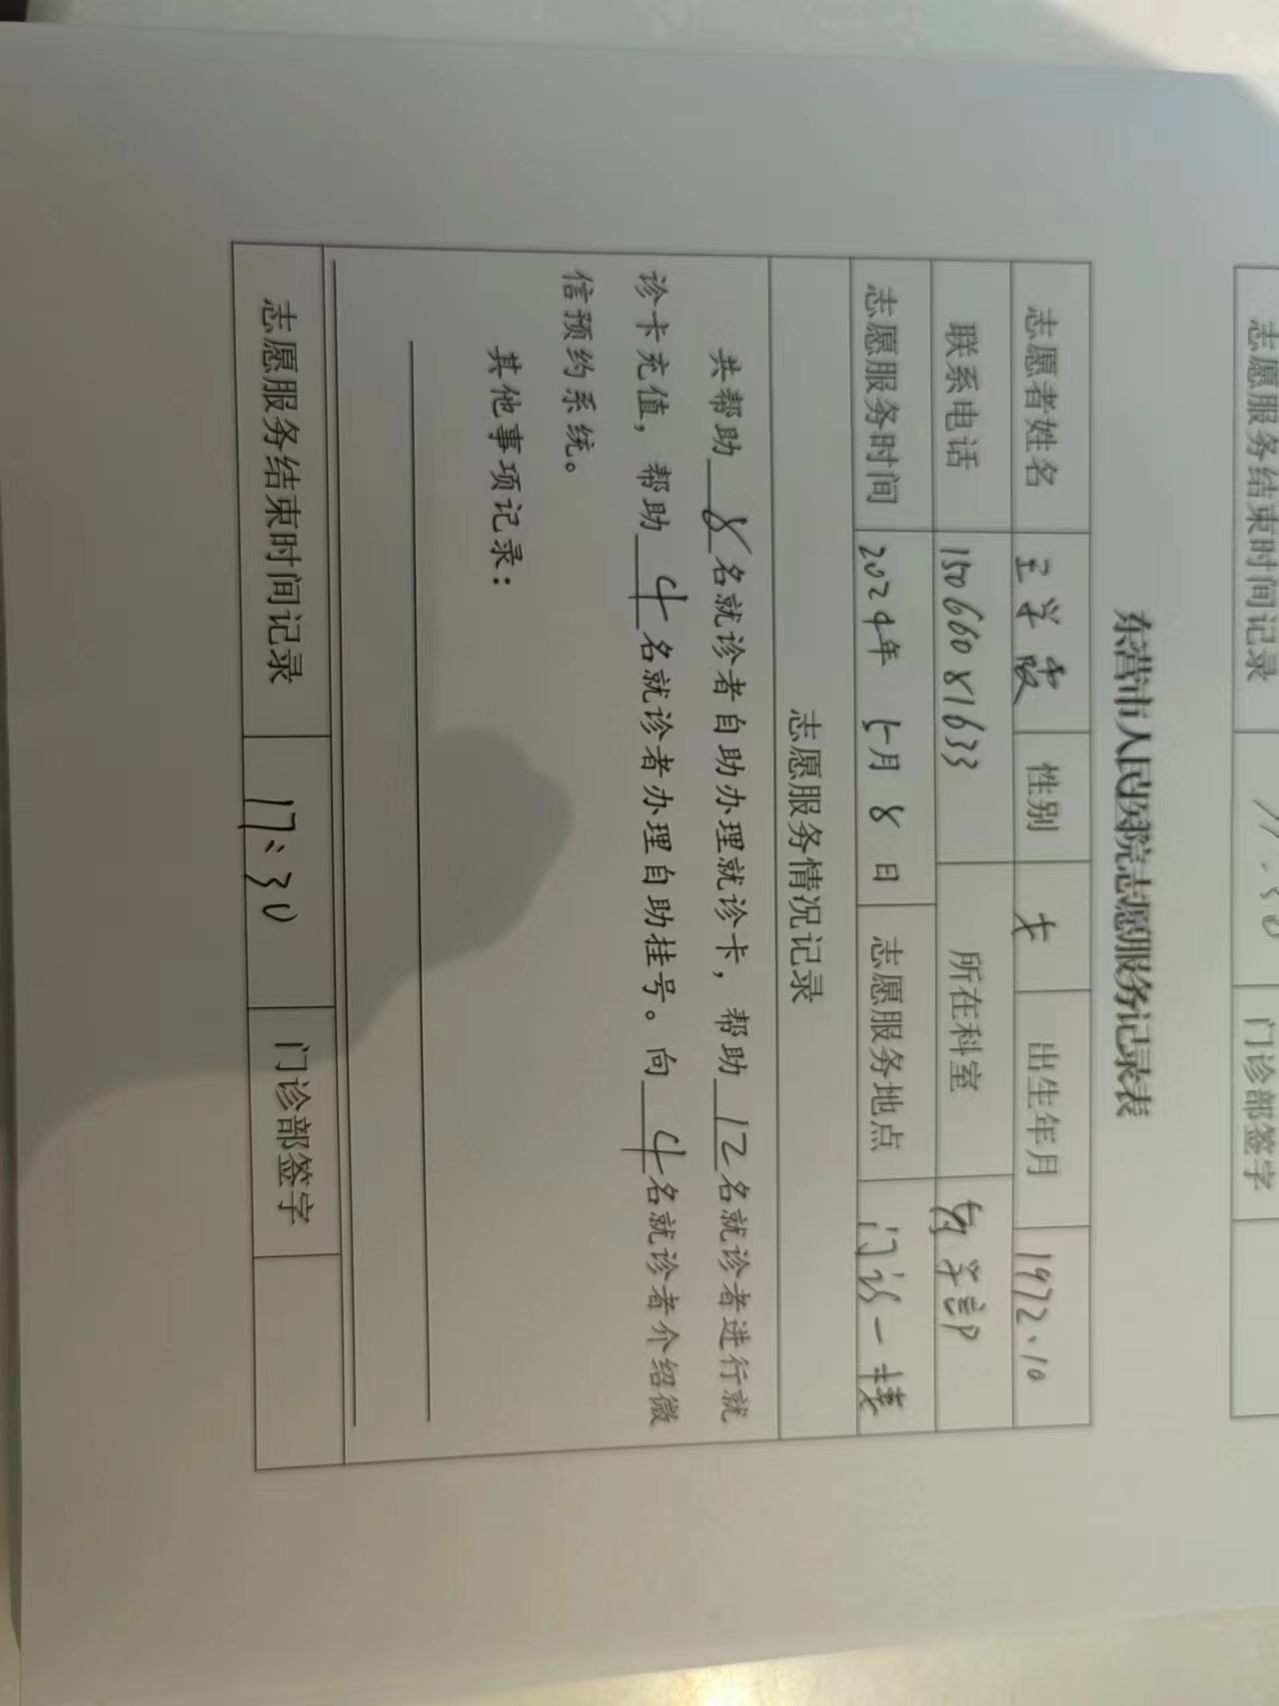 志愿服务结束时间记录 门诊部签字
东营市人民医院志愿服务记录表
志愿者姓名 性别 女 出生年月 1972.10
联系电话 15066081633 所在科室
志愿服务时间 2024年 5月 8 日 志愿服务地点 门诊一楼
志愿服务情况记录
共帮助 8 名就诊者自助办理就诊卡，帮助 12 名就诊者进行就
诊卡充值，帮助 4 名就诊者办理自助挂号。向 4 名就诊者介绍微
信预约系统。
其他事项记录：
志愿服务结束时间记录 17:30 门诊部签字